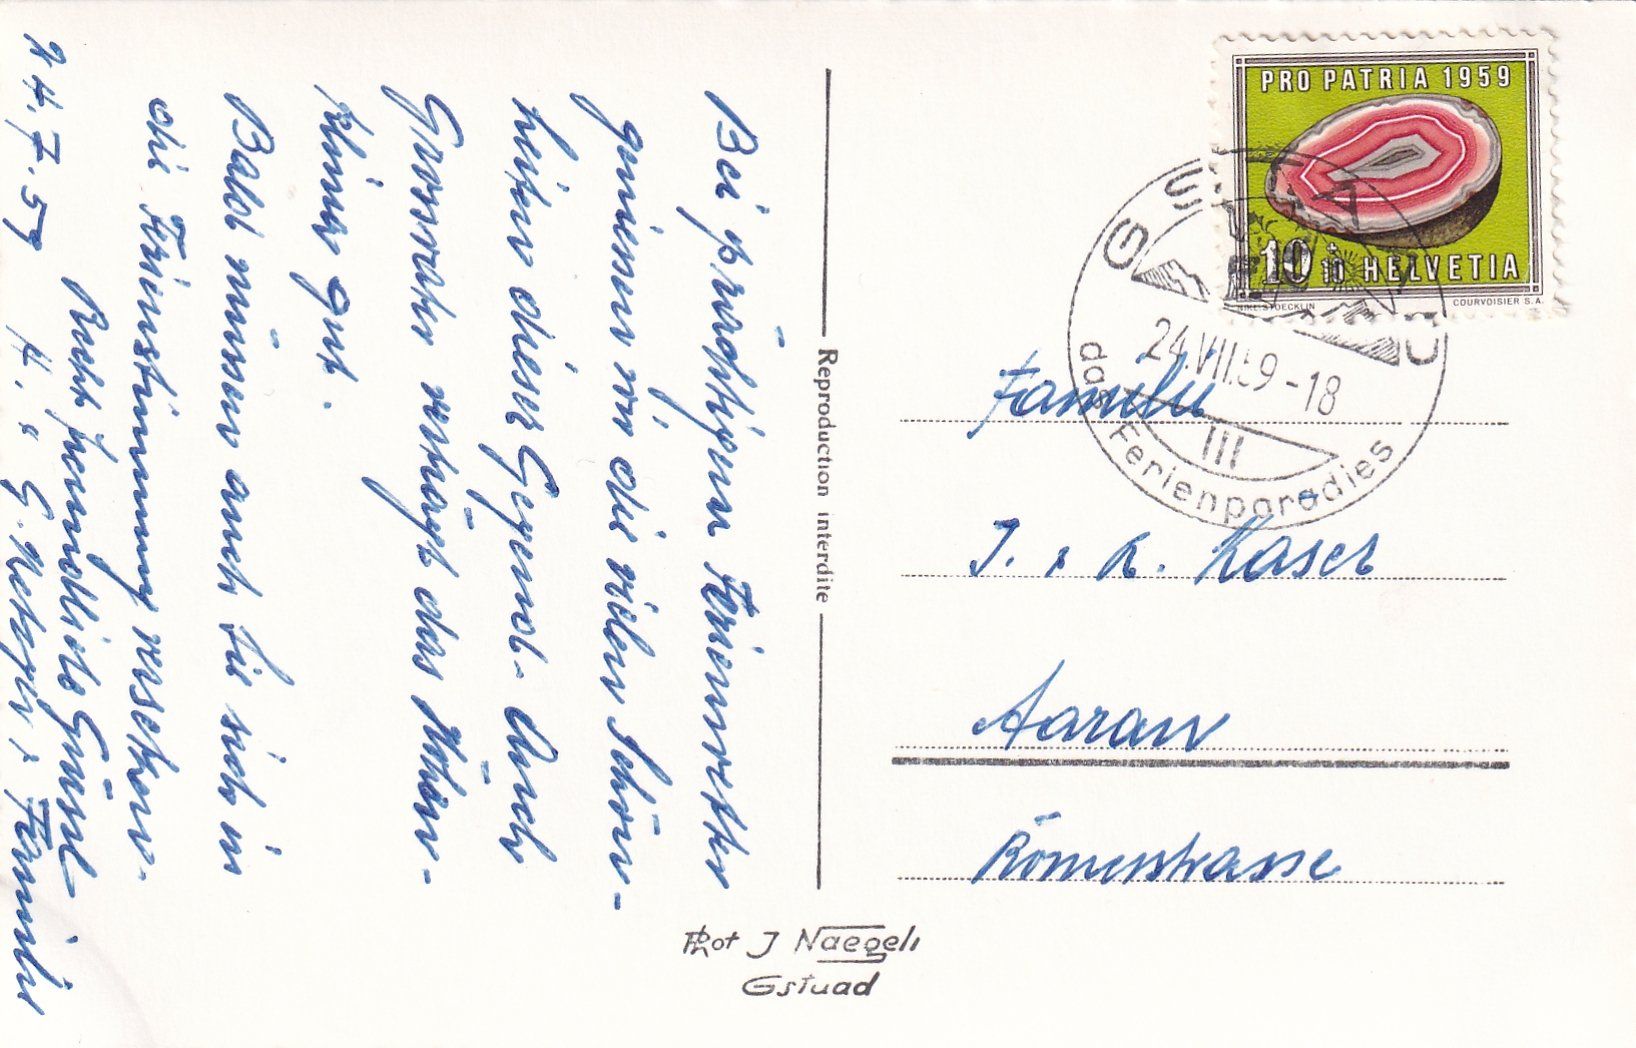 Bei prächtigem Ferienwetter
geniessen wir die vielen Schön-
heiten dieser Gegend. Auch
Grossvater verträgt das Höhen-
klima gut.
Bald müssen auch Sie sich in
die Ferienstimmung versetzen.
Recht freundliche Grüsse
H. u. G. &
Familie
24.7.59
Reproduction interdite
PRO PATRIA 1959
10 + 10 HELVETIA
NIKL. STOECKLIN
COURVOISIER S.A.
GSTAAD
24.VII.59-18
III
das Ferienparadies
Familie
J. & R. Kaser
Aarau
Römerstrasse
Phot J Naegeli
Gstaad